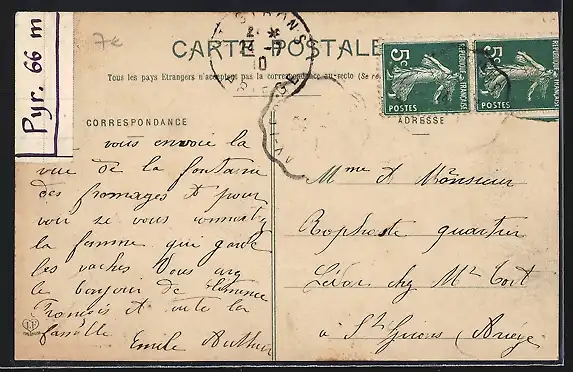 Pyr. 66 m
7€
CARTE POSTALE
Tous les pays Etrangers n'acceptent pas la correspondance au recto (Se re
5c
POSTES
REPUBLIQUE FRANÇAISE
5c
POSTES
CORRESPONDANCE
ADRESSE
vous envoie la
vue de la fontaine
des fromages et pour
voir se vous
la femme que garde
les vaches Vous
le bonjour de
François et toute la
famille
Emile
Mme et Monsieur
quartier
chez Mr
à St Girons (Ariège